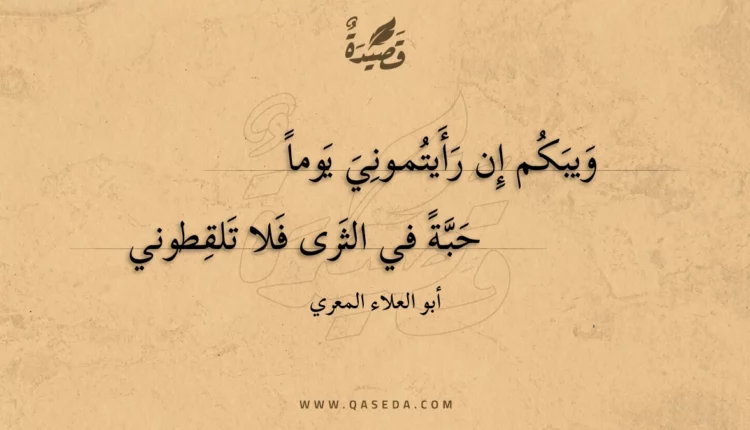 قَصِيْدَةٌ
وَيبَكُم إِن رَأَيتُمونِيَ يَوماً
حَبَّةً في الثَرى فَلا تَلقِطوني
أبو العلاء المعري
WWW.QASEDA.COM